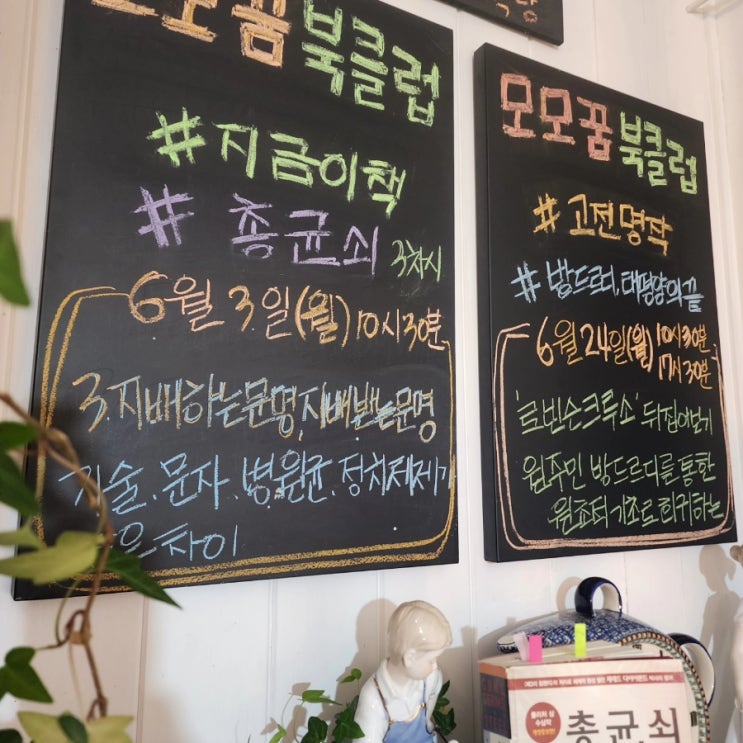 모모꿈 북클럽
#지금이책
# 총균쇠 3차시
6월 3일(월) 10시30분
3. 지배하는문명, 지배받는문명
기술.문자.병원균.정치체제가
은차이
모모꿈 북클럽
#고전명작
#방드르디,태평양의끝
6월24일(월) 10시30분
17시30분
'로빈슨크루소' 뒤집어보기
원주민 방드르디를 통한
원초적 기초로 회귀하는
총균쇠